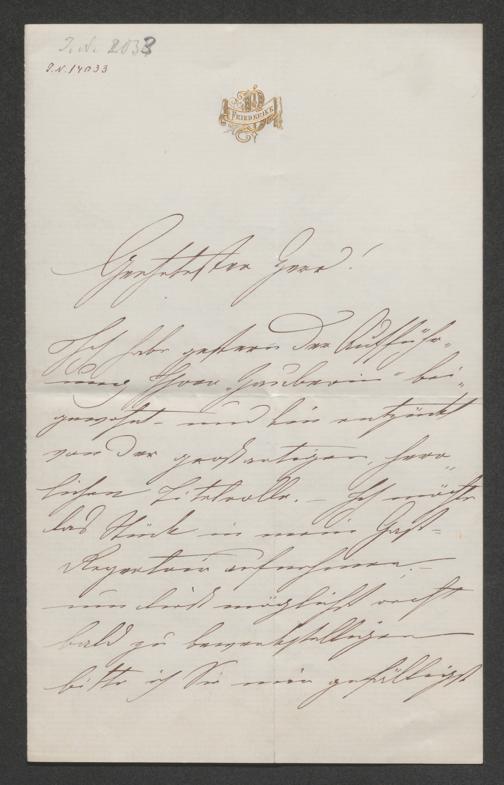 J.N. 2033
J.N. 14033
FRIEDERIKE
Geehrtester Herr!
Ich habe gestern der Aufführ-
ung Ihrer „Zauberin" bei-
gewohnt – und bin entzückt
von der großartigen, herr-
lichen Titelrolle. – Ich möchte
das Stück in mein Gast-
Repertoir aufnehmen. –
um dieß möglichst recht
bald zu bewerkstelligen
bitte ich Sie mir gefälligst